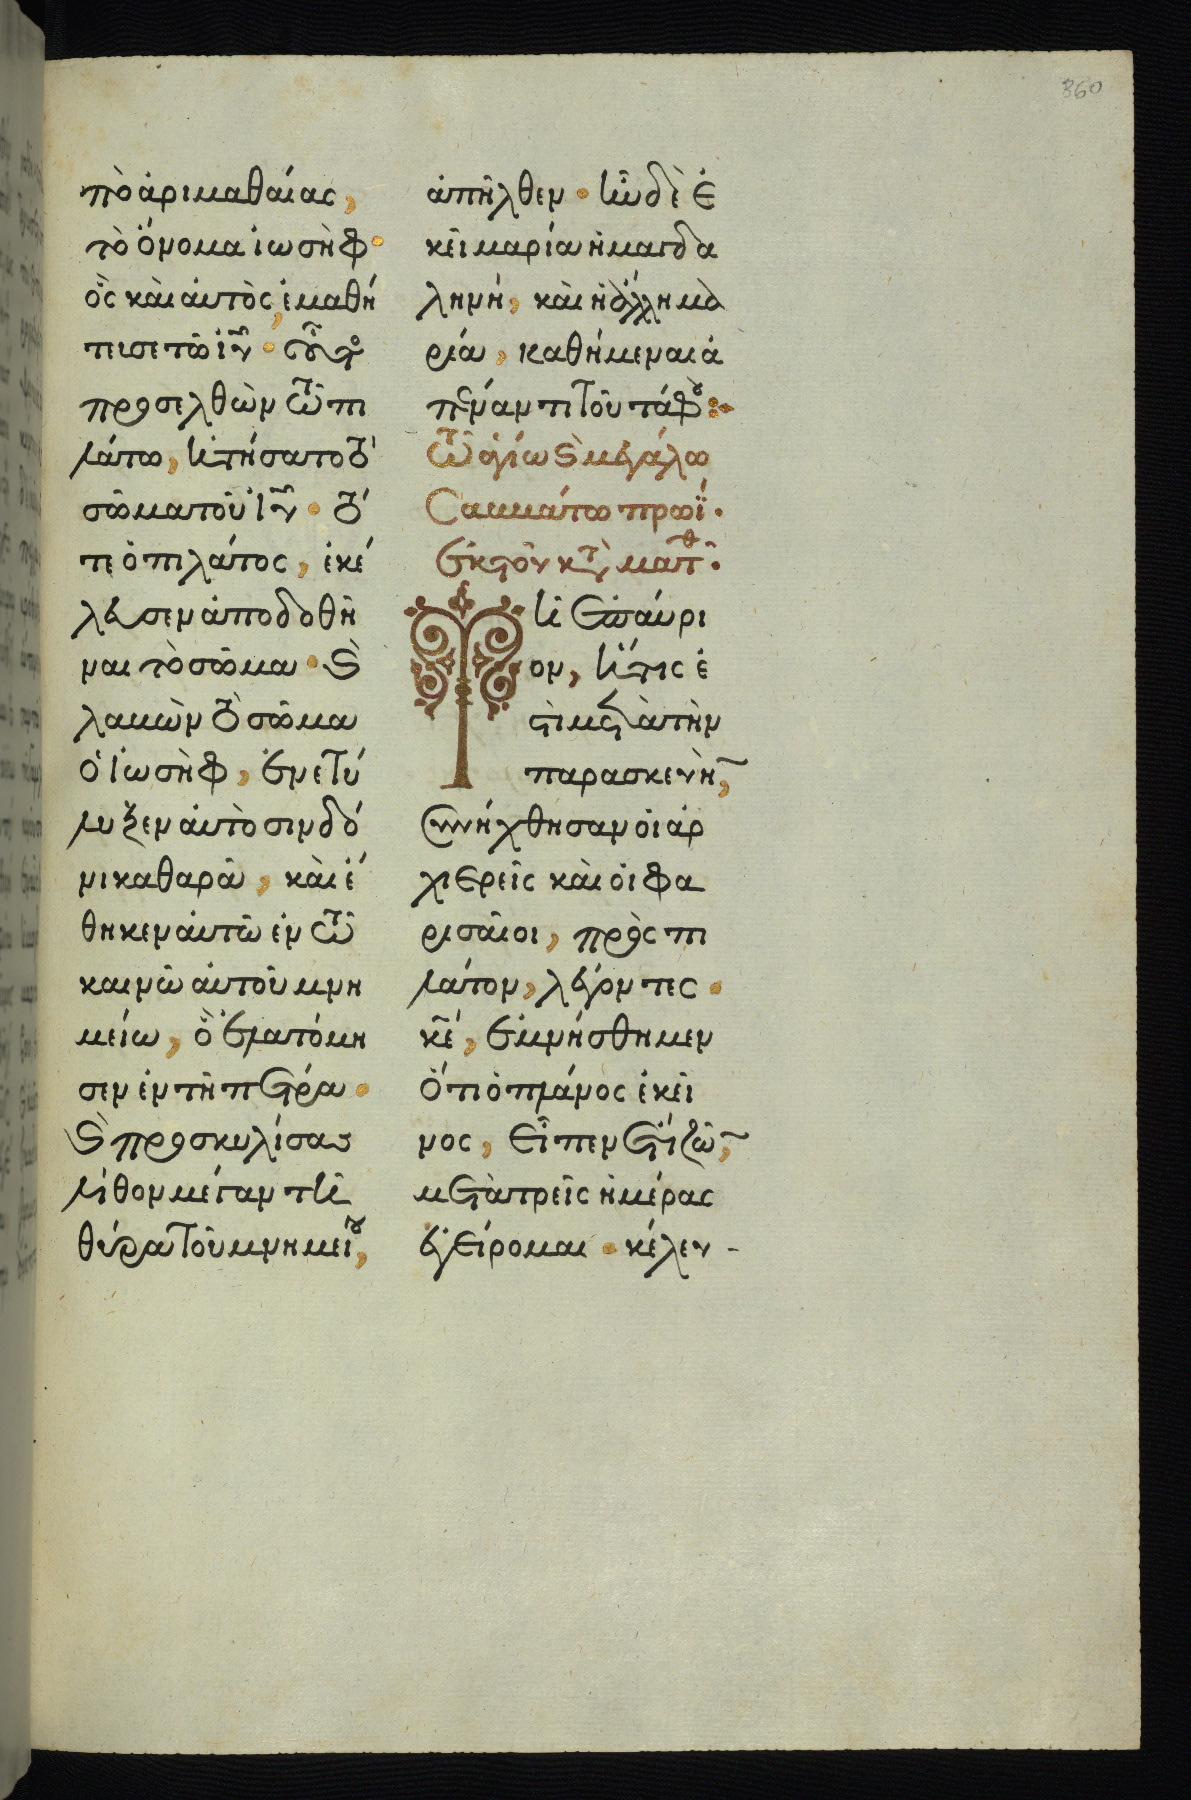 360
πὸ ἀριμαθαίας,
τὸ ὄνομα ἰωσὴφ·
ὃς καὶ αὐτὸς, ἐμαθή
τευσε τῶ ἰῦ· οὗτος
προσελθὼν τῶ πι
λάτω, ἠτήσατο τὸ
σῶμα τοῦ ἰῦ· τό
τε ὁ πιλάτος, ἐκέ
λευσεν ἀποδοθῆ
ναι τὸ σῶμα· καὶ
λαβὼν τὸ σῶμα
ὁ ἰωσὴφ, ἐνετύ
λυξεν αὐτὸ σινδό
νι καθαρᾶ, καὶ ἔ
θηκεν αὐτῶ ἐν τῶ
καινῶ αὐτοῦ μνη
μείω, ὃ ἐλατόμη
σεν ἐν τῆ πέτρα·
καὶ προσκυλίσας
λίθον μέγαν τῆ
θύρα τοῦ μνημείου,
ἀπῆλθεν· ἦν δὲ ἐ
κεῖ μαρία ἡ μαγδα
ληνή, καὶ ἡ ἄλλη μα
ρία, καθήμεναι ἀ
πέναντι τοῦ τάφου:
τῶ ἁγίω καὶ μεγάλω
Σαββάτω πρωΐ·
ἐκ τοῦ κατὰ ματθ·
Τῆ ἐπαύρι
ον, ἥτις ἐ
στὶ μετὰ τὴν
παρασκευὴν,
Συνήχθησαν οἱ ἀρ
χιερεῖς καὶ οἱ φα
ρισαῖοι, πρὸς πι
λάτον, λέγοντες·
κε, ἐμνήσθημεν
ὅτι ὁ πλάνος ἐκεῖ
νος, εἶπεν ἔτι ζῶν,
μετὰ τρεῖς ἡμέρας
ἐγείρομαι· κέλευ-